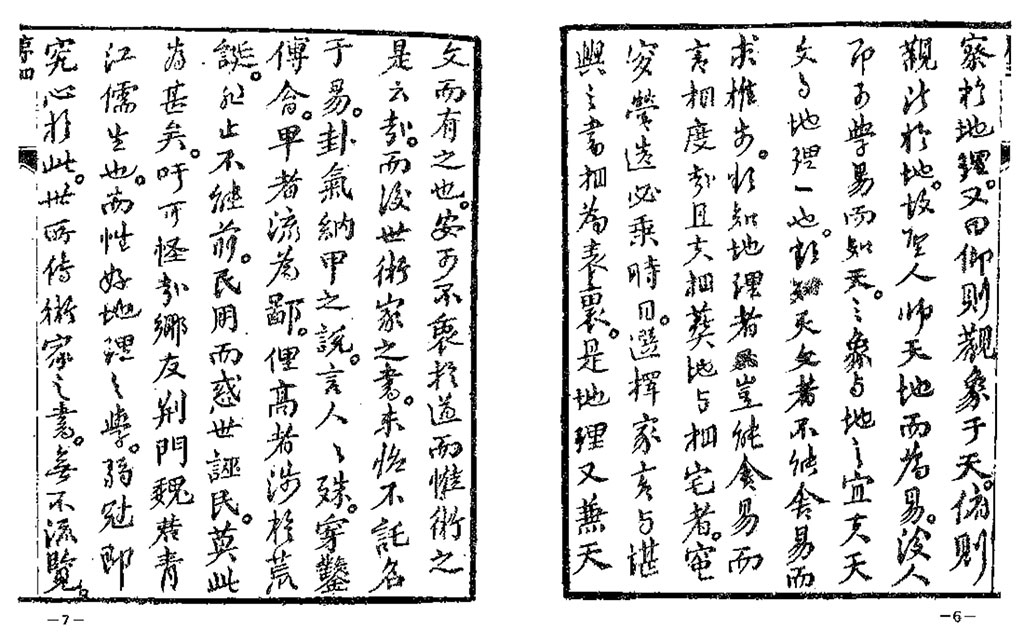 察於地理。又曰仰則觀象于天。俯則
觀法於地。故聖人師天地而為易。後人
即可學易而知天。之象与地之宜夫天
文与地理一也。欲知天文者不能舍易而
求推步。欲知地理者豈能舍易而
言相度哉且夫相葬地与相宅者。窀
穸營造必乘時日。選擇家言与堪
輿之書相為表裏。是地理又兼天
—6—
文而有之也。安可不衷於道而惟術之
是云哉。而後世術家之書。未始不託名
于易。卦氣納甲之說。言人人殊。穿鑿
傅會。卑者流為鄙。俚高者涉於荒
誕。非止不能前。民用而惑世誣民。莫此
為甚矣。吁可怪哉鄉友荊門魏君青
江儒生也。而性好地理之學。弱冠即
究心於此。世所傳術家之書。無不流覽。
序四
—7—